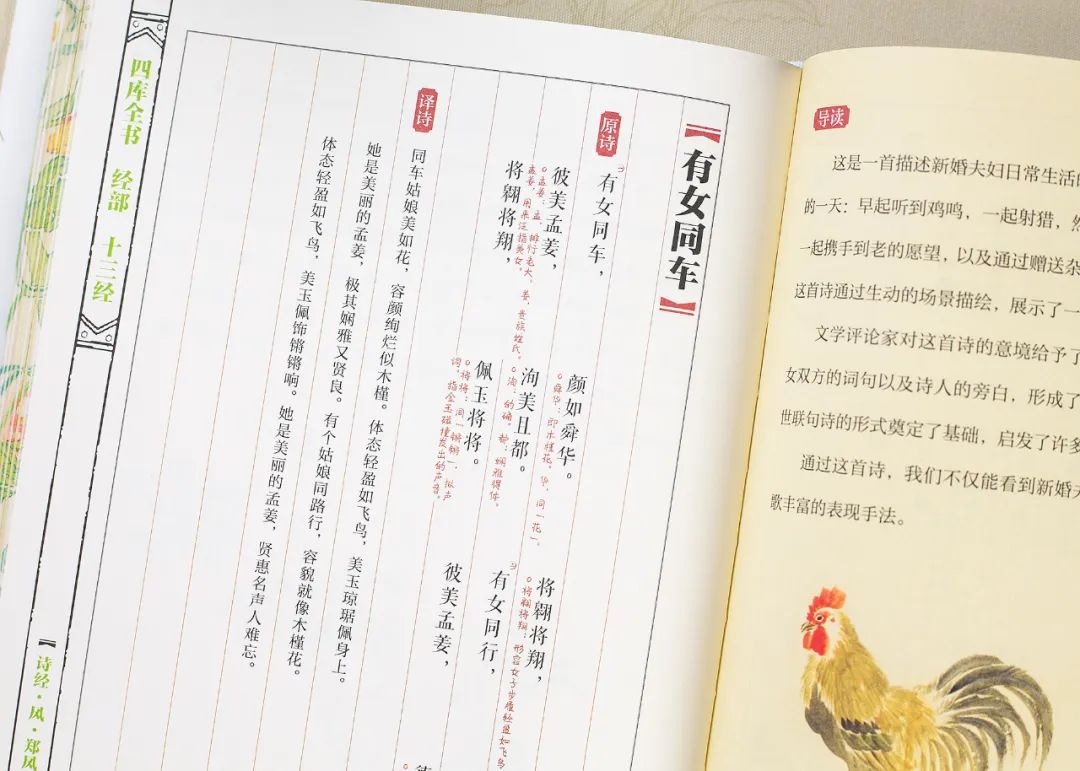 导读
这是一首描述新婚夫妇日常生活的
的一天：早起听到鸡鸣，一起射猎，然
一起携手到老的愿望，以及通过赠送杂
这首诗通过生动的场景描绘，展示了一
文学评论家对这首诗的意境给予了
女双方的词句以及诗人的旁白，形成了
世联句诗的形式奠定了基础，启发了许多
通过这首诗，我们不仅能看到新婚夫
歌丰富的表现手法。
有女同车
原诗
有女同车，
颜如舜华。
舜华：即木槿花。华，同“花”。
将翱将翔，
将翱将翔：形容女子步履轻盈如飞鸟
彼美孟姜，
孟姜：孟，排行老大。姜，贵族姓氏。
孟姜，用来泛指美女。
洵美且都。
洵：的确。都：娴雅得体。
有女同行，
将翱将翔，
佩玉将将。
将将：同“锵锵”，拟声
词，指金玉碰撞发出的声音。
彼美孟姜，
译诗
同车姑娘美如花，容颜绚烂似木槿。体态轻盈如飞鸟，美玉琼琚佩身上。
她是美丽的孟姜，极其娴雅又贤良。有个姑娘同路行，容貌就像木槿花。
体态轻盈如飞鸟，美玉佩饰锵锵响。她是美丽的孟姜，贤惠名声人难忘。
四库全书 经部 十三经
诗经·风·郑风